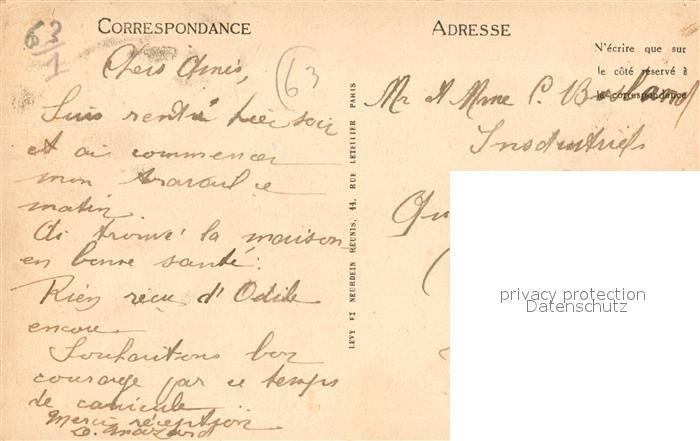 63/1
CORRESPONDANCE
63
Chers Amis,
Suis rentré hier soir
et ai commencer
mon travail ce
matin.
Ai trouvé la maison
en bonne santé.
Rien reçu d'Odile
encore
Souhaitons bon
courage par ce temps
de canicule
Merci réception
LEVY ET NEURDEIN RÉUNIS, 44, RUE LETELLIER PARIS
ADRESSE
N'écrire que sur
le côté réservé à
la correspondance
Mr et Mme C.
Industriels
privacy protection
Datenschutz